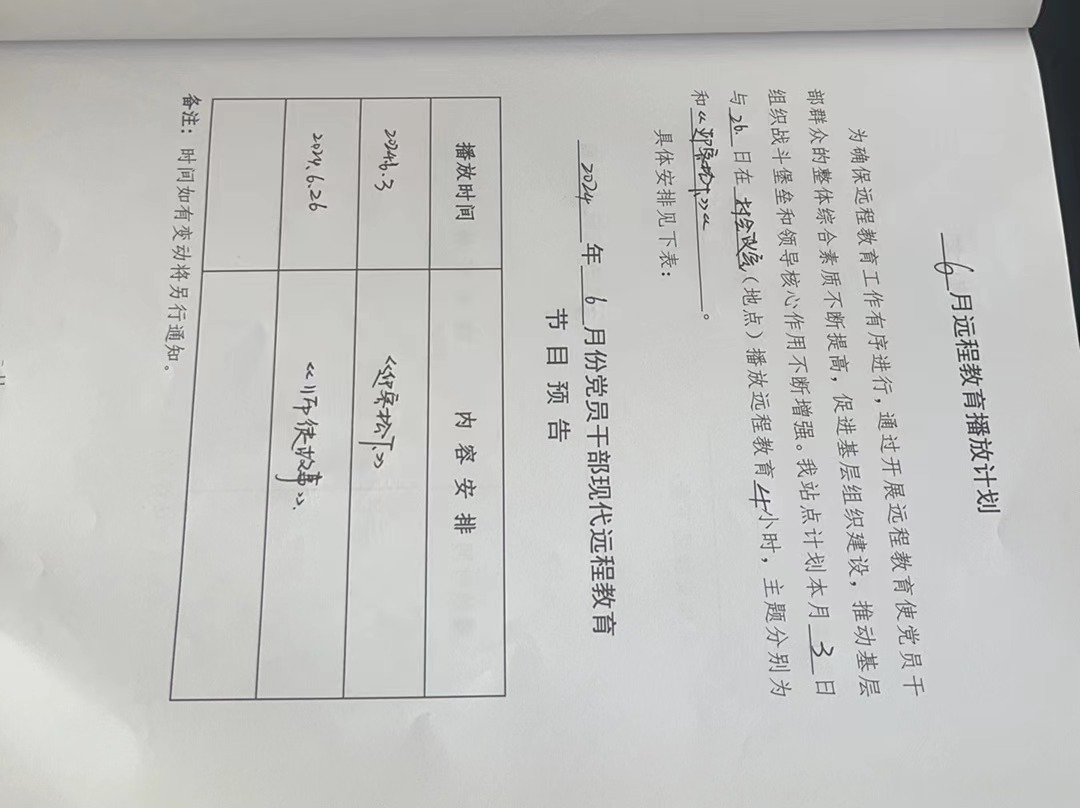 6月远程教育播放计划
为确保远程教育工作有序进行，通过开展远程教育使党员干
部群众的整体综合素质不断提高，促进基层组织建设，推动基层
组织战斗堡垒和领导核心作用不断增强。我站点计划本月3日
与26日在村会议室（地点）播放远程教育4小时，主题分别为
和
具体安排见下表：
2024年6月份党员干部现代远程教育
节目预告
播放时间 内容安排
2024.6.3
2024.6.26 故事》
备注：时间如有变动将另行通知。